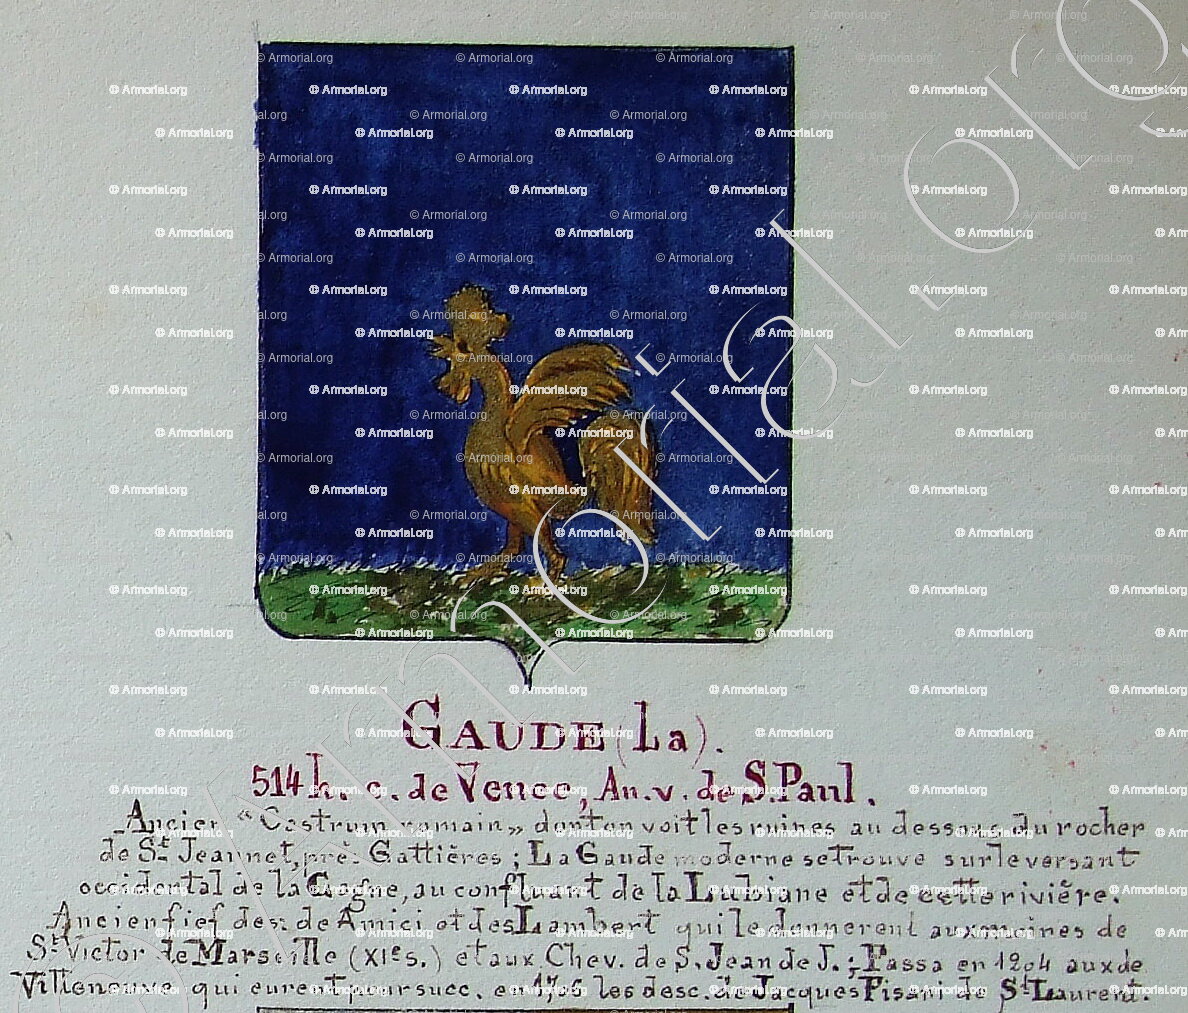 GAUDE (La).
514 h. c. de Vence, An. v. de S. Paul.
Ancien "Castrum romain" dont on voit les ruines au dessous du rocher
de St Jeannet, près Gattières ; La Gaude moderne se trouve sur le versant
occidental de la Cagne, au confluant de la Lubiane et de cette rivière.
Ancien fief des de Amici et des Lambert qui le donnerent aux moines de
St Victor de Marseille (XIe s.) et aux Chev. de S. Jean de J. ; Passa en 1204 aux de
Villeneuve qui eurent pour succ. en les desc. de Jacques Pisani de St Laurent.
© Armorial.org
Armorial.org